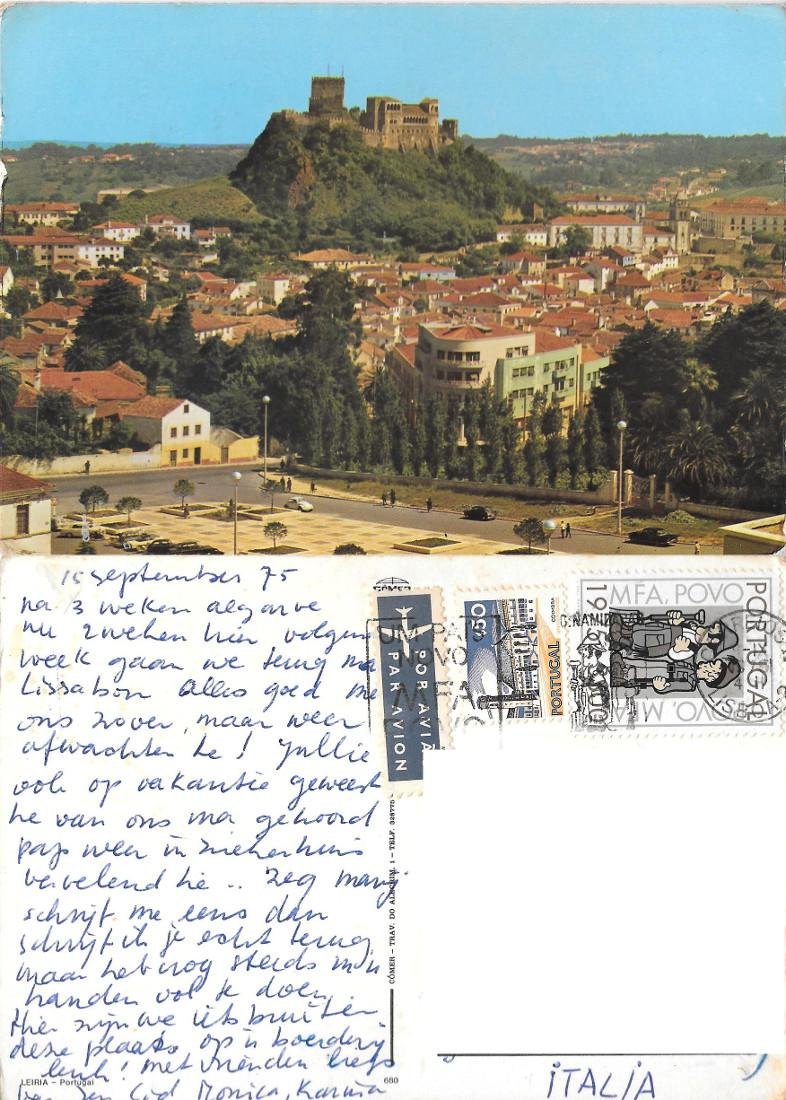 15 September 75
na 3 weken algarve
nu 2 weken hier volgende
week gaan we terug na
Lissabon Alles goed me
ons zover, maar weer
afwachten he! Jullie
ook op vakantie geweest
he van ons ma gehoord
pap weer in ziekenhuis
vervelend he .. Zeg
schrijf me eens dan
schrijf ik je echt terug
maar heb nog steeds m'n
handen vol te doen
Hier zijn we iets buiten
deze plaats op 'n boerderij
leuk! met vrienden
Monica,
LEIRIA – Portugal
680
CÓMER
CÓMER – TRAV. DO ALECRIM, 1 – TELF. 328775
POR AVIÃO
PAR AVION
$50
COIMBRA
PORTUGAL
MFA, POVO
PORTUGAL
POVO, MFA
UM PAIS
NOVO
MFA
POVO
ITALIA